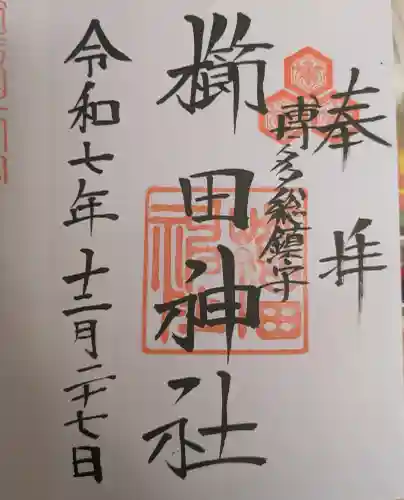 奉拝
博多総鎮守
櫛田神社
令和七年十二月二十七日
櫛田神社